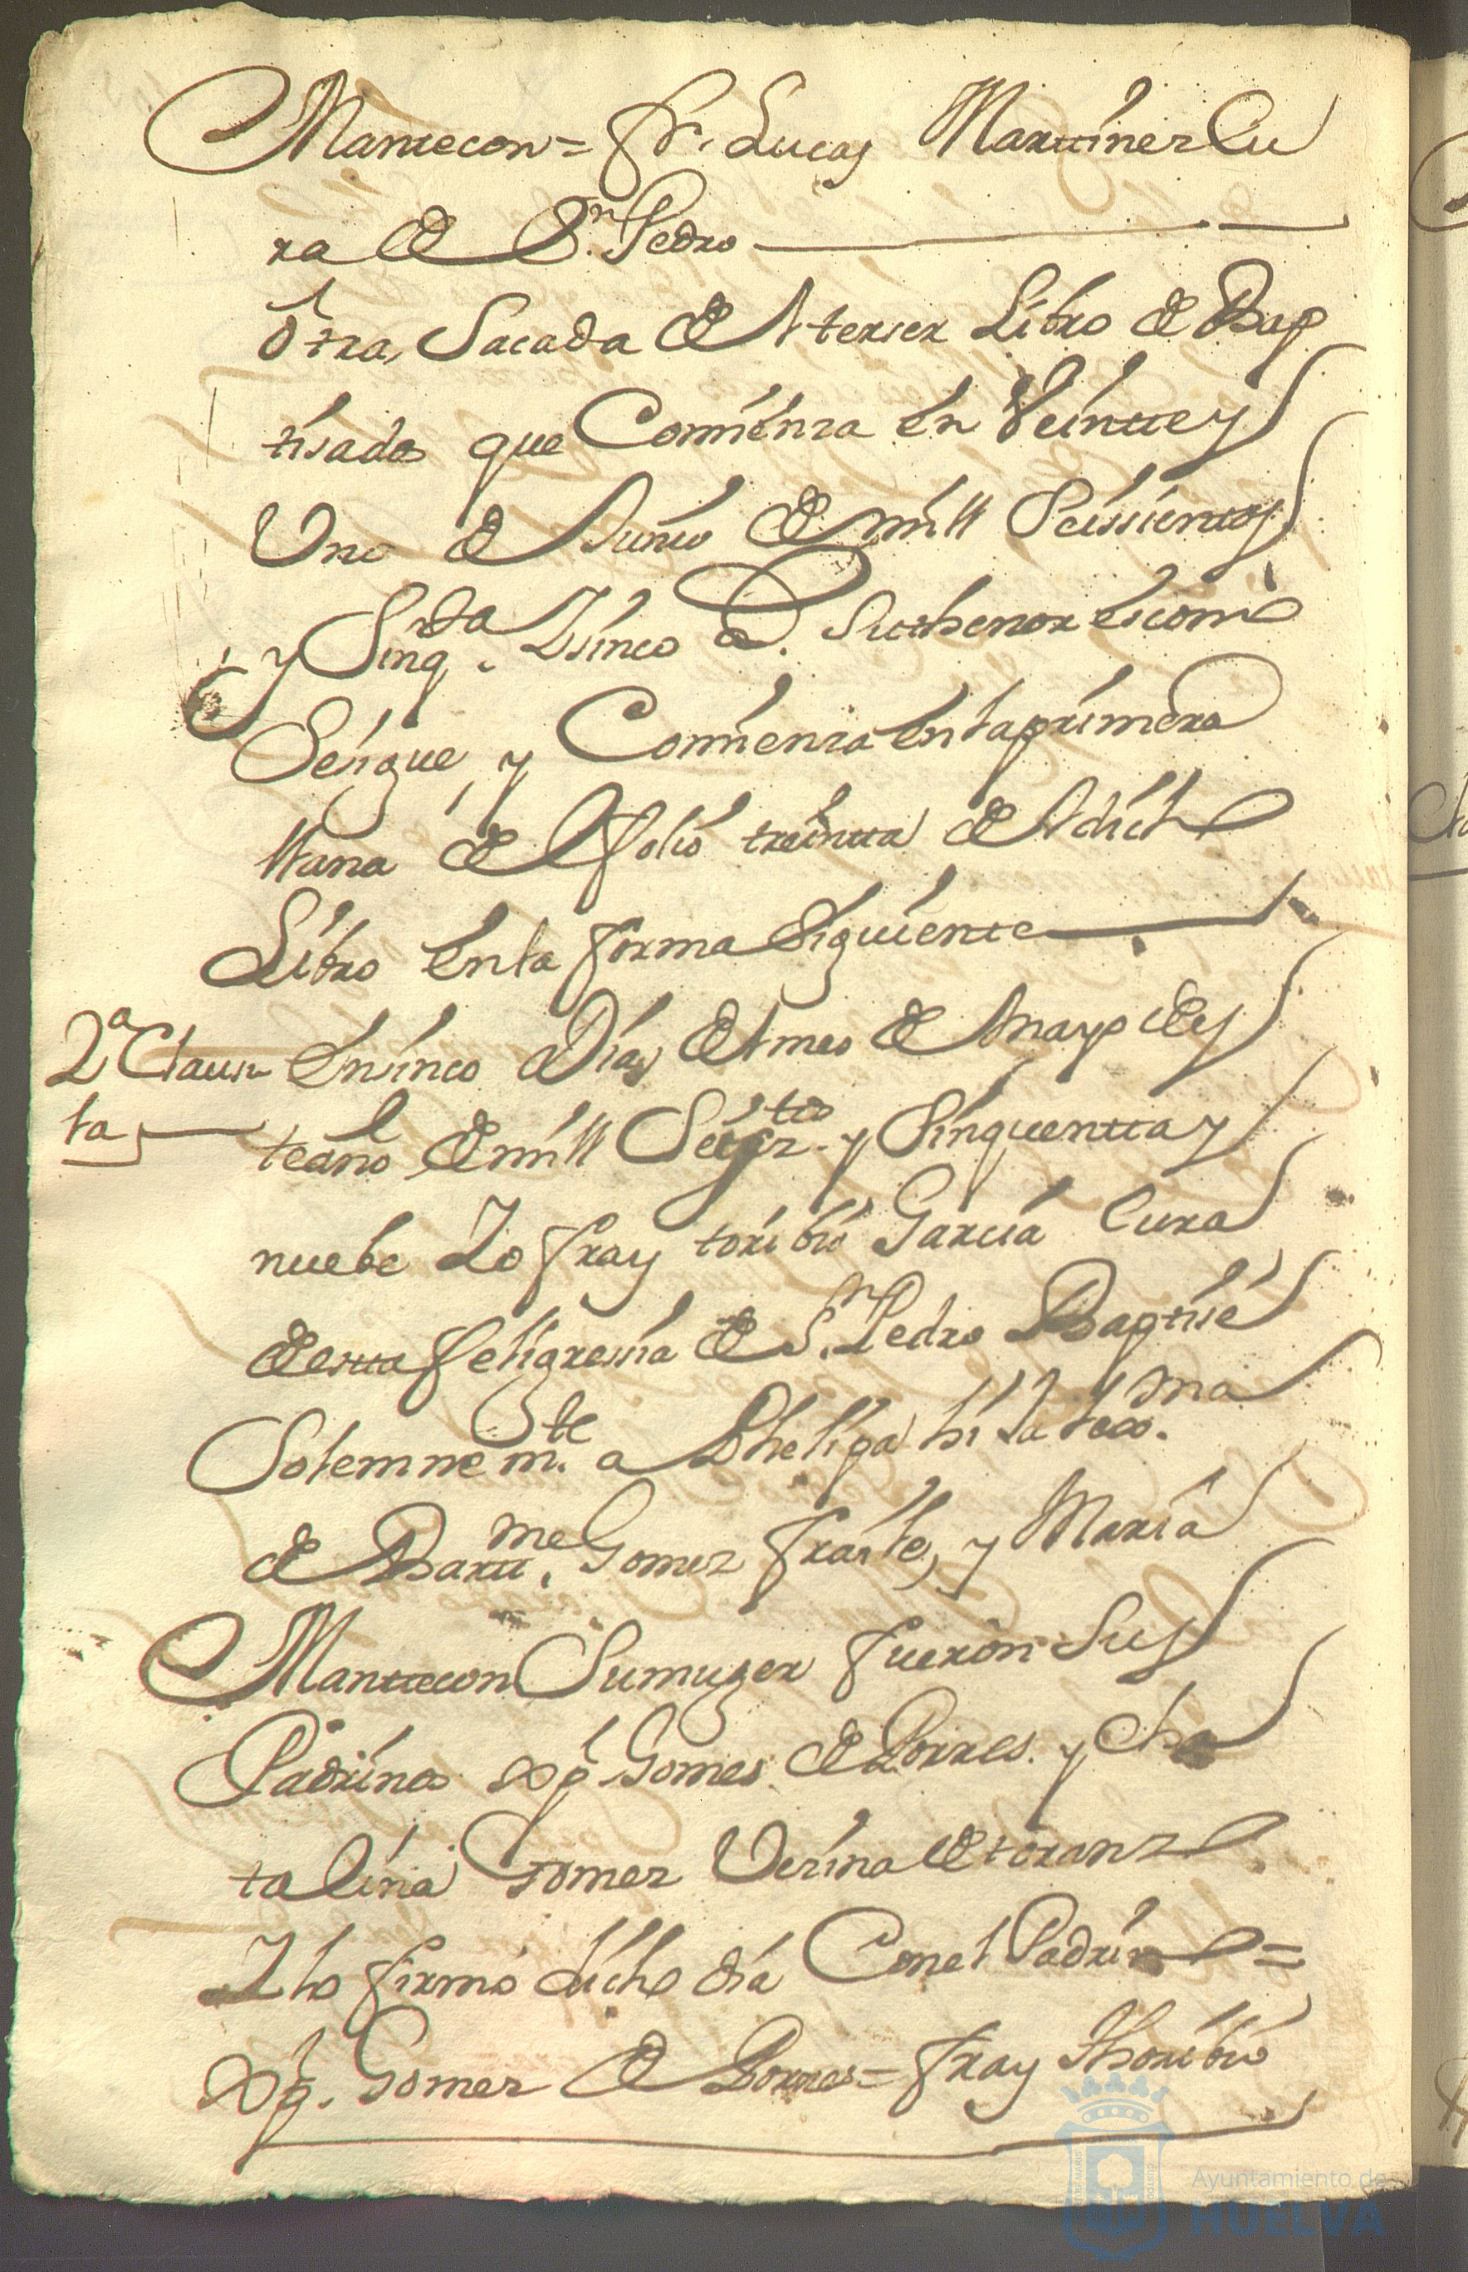 Mantecon = fr. Lucas Martinez Cu
ra de Sn. Pedro
Otra, Sacada del terser Libro de Bap
tisados que Comienza en Veintte y
Uno de Junio de mill Seissientos
y Sinqta. Zsinco a. Su thenor es como
Seigue, y Comienza en la primera
llana de folio treintta del dicho
Libro en la forma Siguiente
2a Clausu
la
En sinco Dias del mes de Mayo de es
te año de mill Seiszttos. y Sinquentta y
nuebe Yo fray toribio Garcia Cura
de estta feligresia de Sn. Pedro Baptise
Solemnemte. a Phelipa hija lexma.
de Barttme. Gomez fraile, y Maria
Manttecon Su muger fueron Sus
Padrinos Xpl Gomes de Porres. y Cha
talina Gomez Vezina de toranzo.
Y lo firmo dicho dia Con el Padrino =
Xpl. Gomez de Porres = fray Thoribio
Ayuntamiento de
HUELVA